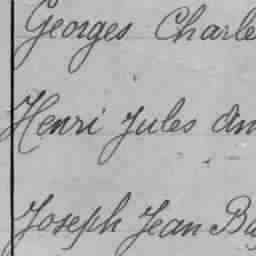 Georges Charle
Henri Jules An
Joseph Jean Ba